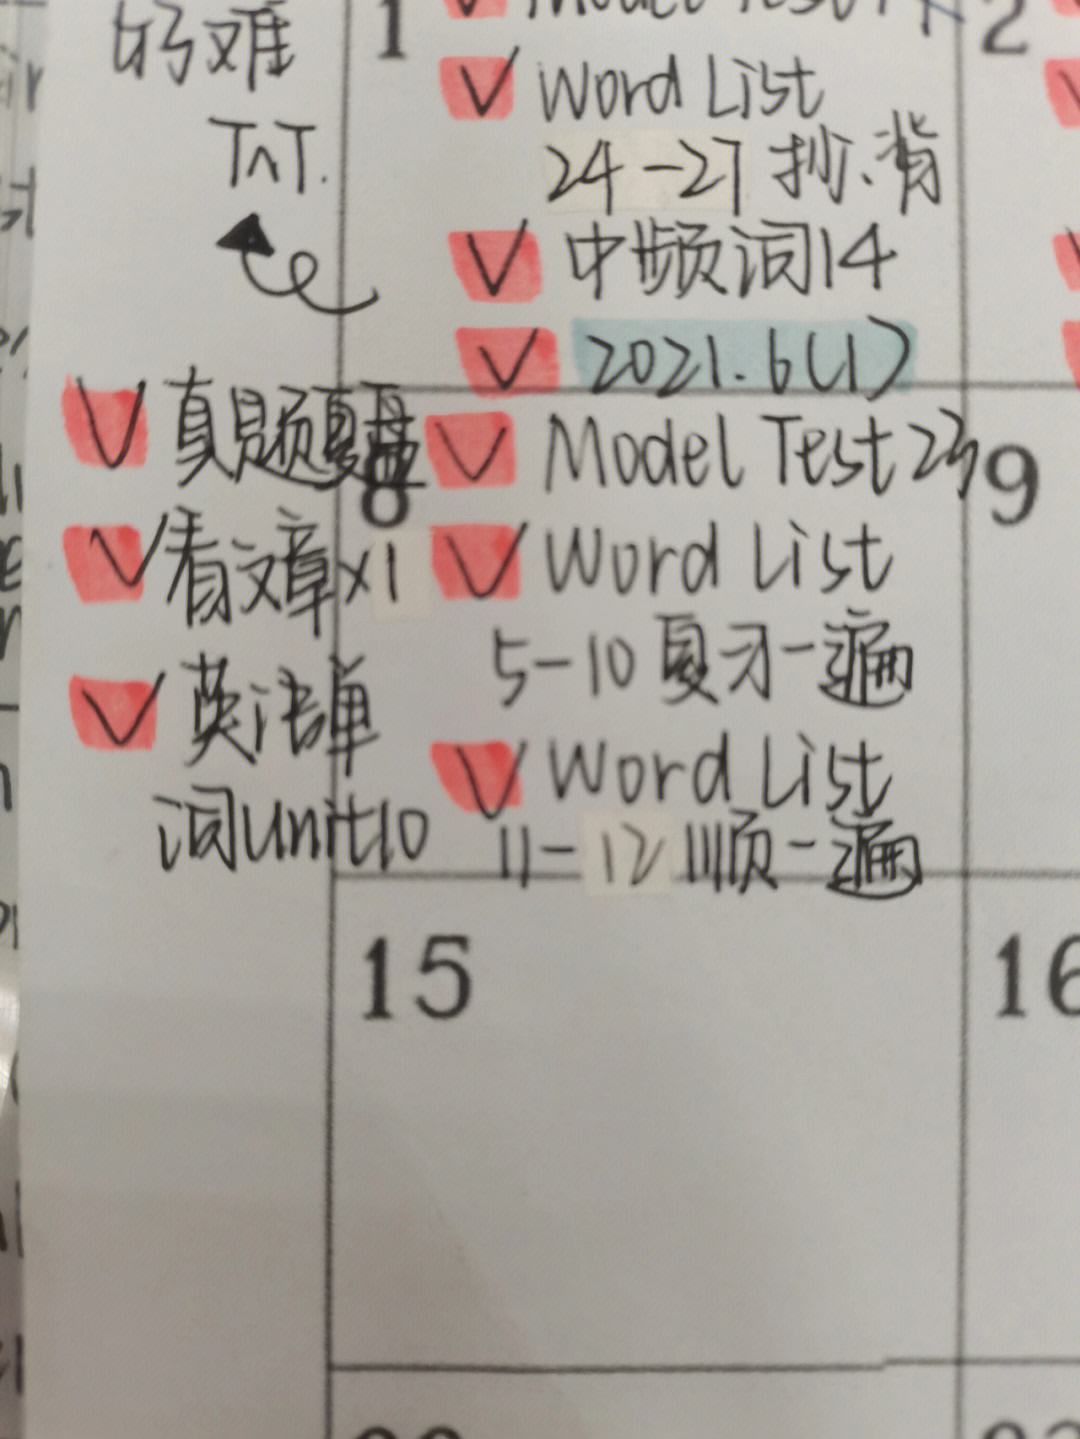 好难
TnT.
1
2
Word List
24-27 抄、背
中频词14
2021.6(1)
真题复盘
8
Model Test 23
9
看文章x1
Word List
5-10 复习一遍
英语单
词Unit10
Word List
11-12 顺一遍
15
16